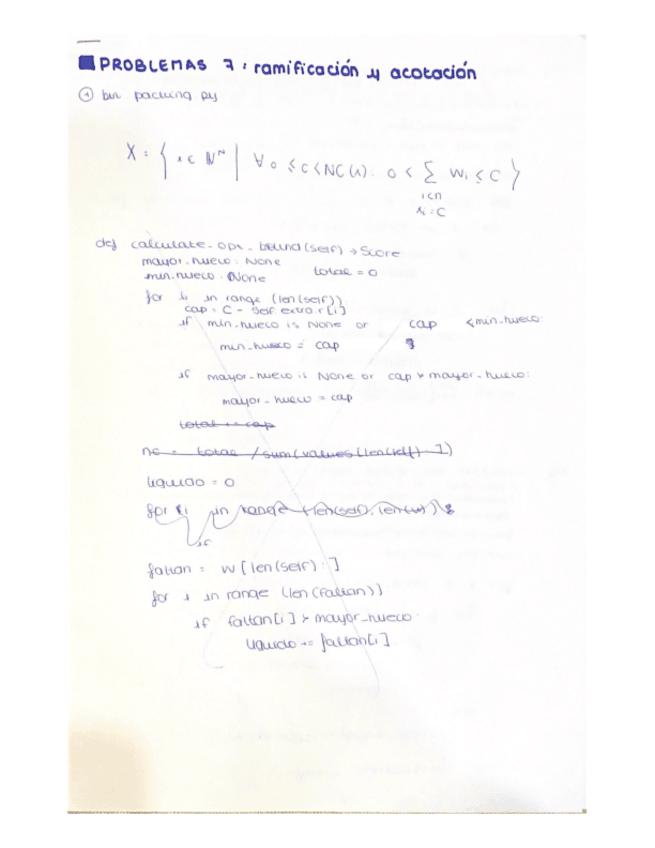 PROBLEMAS 7: ramificación y acotación
① bin packing py
X = { x ∈ Nⁿ | ∀ 0 ≤ c < NC(x): 0 < ∑ wi ≤ C }
i<n
xi = c
def calculate_opt_bound(self) → Score
mayor_hueco: None
min_hueco: None total = 0
for i in range (len(self))
cap = C - self.extra.r[i]
if min_hueco is None or cap < min_hueco:
min_hueco = cap
if mayor_hueco is None or cap > mayor_hueco:
mayor_hueco = cap
total += cap
nc = total / sum(values[len(self): ])
liquido = 0
for i in range (len(self), len(w))
if
faltan = w [len(self): ]
for i in range (len(faltan))
if faltan[i] > mayor_hueco:
liquido += faltan[i]